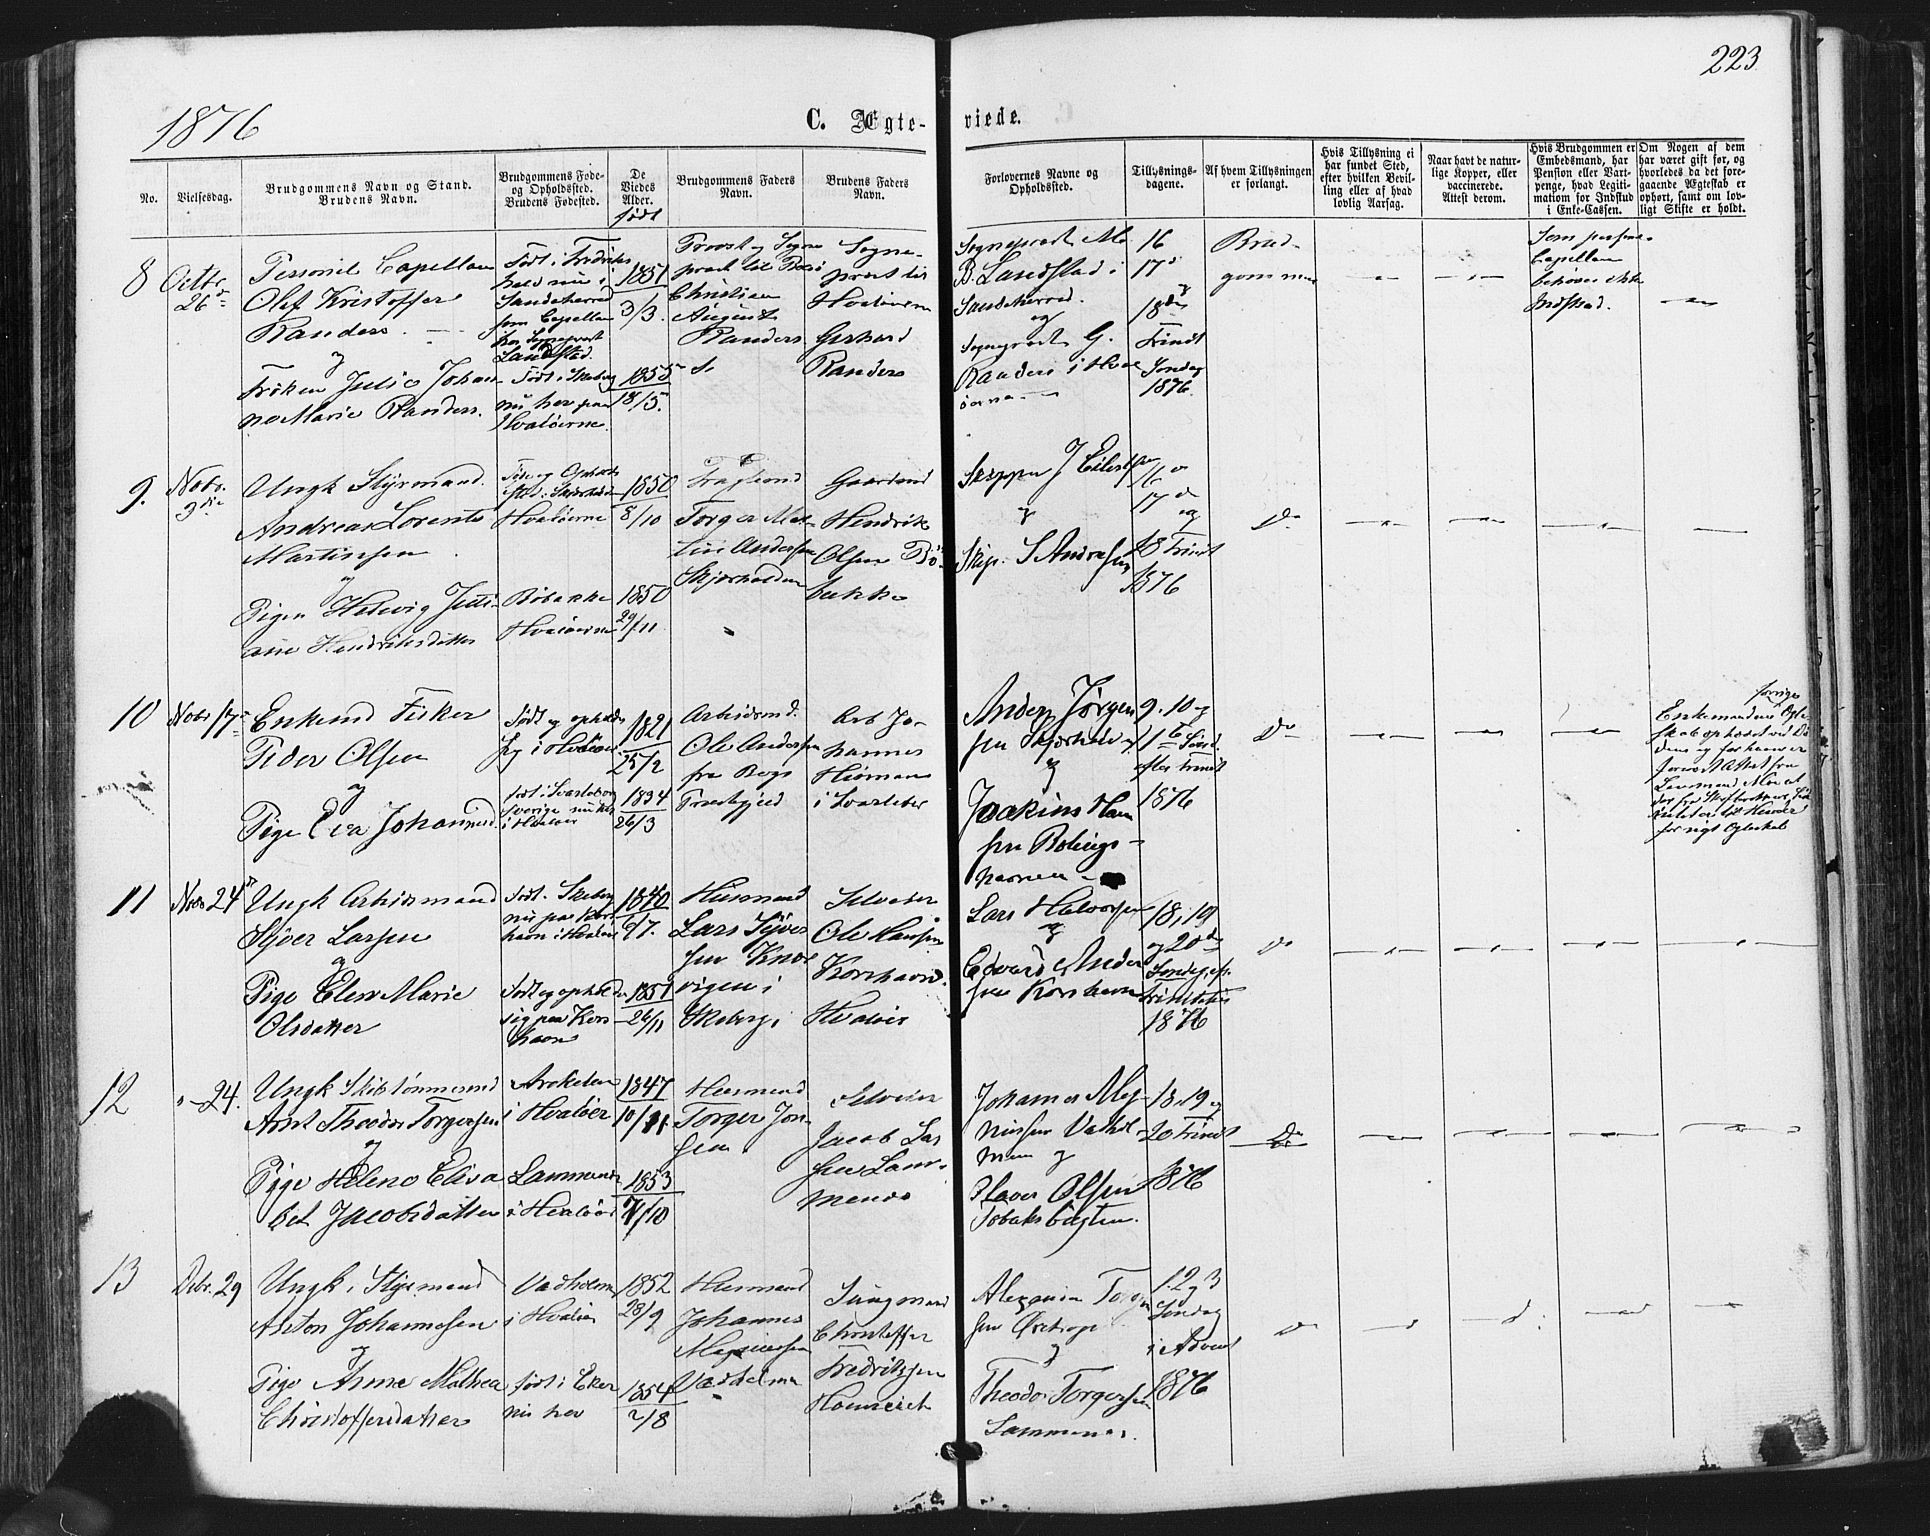 223.
1876
C. Ægte-
viede.
No.
Vielsesdag.
Brudgommens Navn og Stand.
Brudens Navn.
Brudgommens Føde-
og Opholdssted.
Brudens Fødested.
De
Viedes
Alder.
født
Brudgommens Faders
Navn.
Brudens Faders
Navn.
Forlovernes Navne og
Opholdssted.
Tillysnings-
dagene.
Af hvem Tillysningen
er forlangt.
Hvis Tillysning ei
har fundet Sted,
efter hvilken Bevil-
ling eller af hvad
lovlig Aarsag.
Naar havt de natur-
lige Kopper, eller
vaccinerede.
Attest derom.
Hvis Brudgommen er
Embedsmand, har
Pension eller Vart-
penge, hvad Legiti-
mation for Indskud
i Enke-Cassen.
Om Nogen af dem
har været gift før, og
hvorledes da det fore-
gaaende Ægteskab er
ophørt, samt om lov-
ligt Skifte er holdt.
8
Octbr
26
Personel Capellan
Olaf Kristoffer
Randers.
og
Frøken Julie Johan
ne Marie Randers.
Født i Fredriks
hald nu i
Sandeherred
som Capellan
hos Sogneprest
Landstad.
Født i Skeberg
nu her paa
Hvaløerne.
1851
3/3.
1855
18/5.
Provst og Sogne
prest til Borge
Christian
August
Randers
Sogne-
prest til
Hvaløerne
Gerhard
Randers
Sogneprest M.
B. Landstad i
Sandeherred.
og
Sogneprest G.
Randers i Hva
løerne
16
17
og
18de
Trinit
Søndag
1876.
Brud-
gommen
Som person.
Capellan
behøves ikke
Indskud.
9.
Novbr.
9de
Ungk Styrmand.
Andreas Lorents
Martinsen
og
Pigen Hedvig Jetti-
ane Hendriksdatter
Hvaløerne
Røbakke
Hvaløerne
1850
8/10
1850
29/11
Torger Mar-
tin Andersen
Skjærhalden
Gaardmd
Hendrik
Olsen Rø-
bakke
Skipper J Eilertsen
og
Skip. S Andresen
16
17
og
18 Trinit
1876
Do
10
Nobr 17
Enkemd Fisker
Peder Olsen
og
Pige Eva Johannesd.
Født og opholder
sig i Hvaløer
født i Svarteborg
Sverige nu her
i Hvaløer
1821
25/2
1834
26/3
Arbeidsmd.
Ole Andersen
fra Borge
Præstegjeld
Arb Jo-
hannes
i Svarteborg
Anders Jørgen
sen Skjærhalden
og
Joakim Han
sen
9. 10 og
11te Sønd.
efter Trinit
1876
Do
forrige
Enkemandens Ægte-
skab ophævet ved Dø-
den
forrigt Ægteskab
11
Novbr 24
Ungk Arbeidsmand
Syver Larsen
og
Pige Elen Marie
Olsdatter
født i Skeberg
nu paa Kors
havn i Hvaløer
Født og opholder
sig paa Kors
havn
1840
6/7.
1851
26/11
Husmand
Lars Syver
sen Knive
vigen i
Skeberg
Selveier
Ole Hansen
Korshavn
Hvaløer
Lars Halvorsen
og
Edvard Anders
sen Korshavn
18, 19
og 20de
Søndag ef.
Trinitatis
1876
Do
12
" 24.
Ungk Skibstømmermd
Arnt Theodor Torgersen
og
Pige Helene Elisa
bet Jacobsdatter
i Hvaløer
Lammenes
i Hvaløer
1847
10/11
1853
7/10
Husmand
Torger Jon-
sen
Selveier
Jacob Lar
sen Lam-
menes
Johannes Mag-
nussen Vathol-
men og
Olaves Olsen
Tobaksbugten.
18, 19 og
20 Trinit
1876
Do
13
Debr. 29
Ungk. Styrmand
Anton Johannesen
og
Pige Anne Mathea
Christoffersdatter
Vadholmen
i Hvaløer
født i Eker
nu her
1852
28/9
1854
2/8
Husmand
Johannes
Magnussen
Vadholmen
Christoffer
Fredriksen
Torger
sen
og
Theodor Torgersen
Lammenes.
1. 2 og 3
Søndag
i Advent
1876
Do